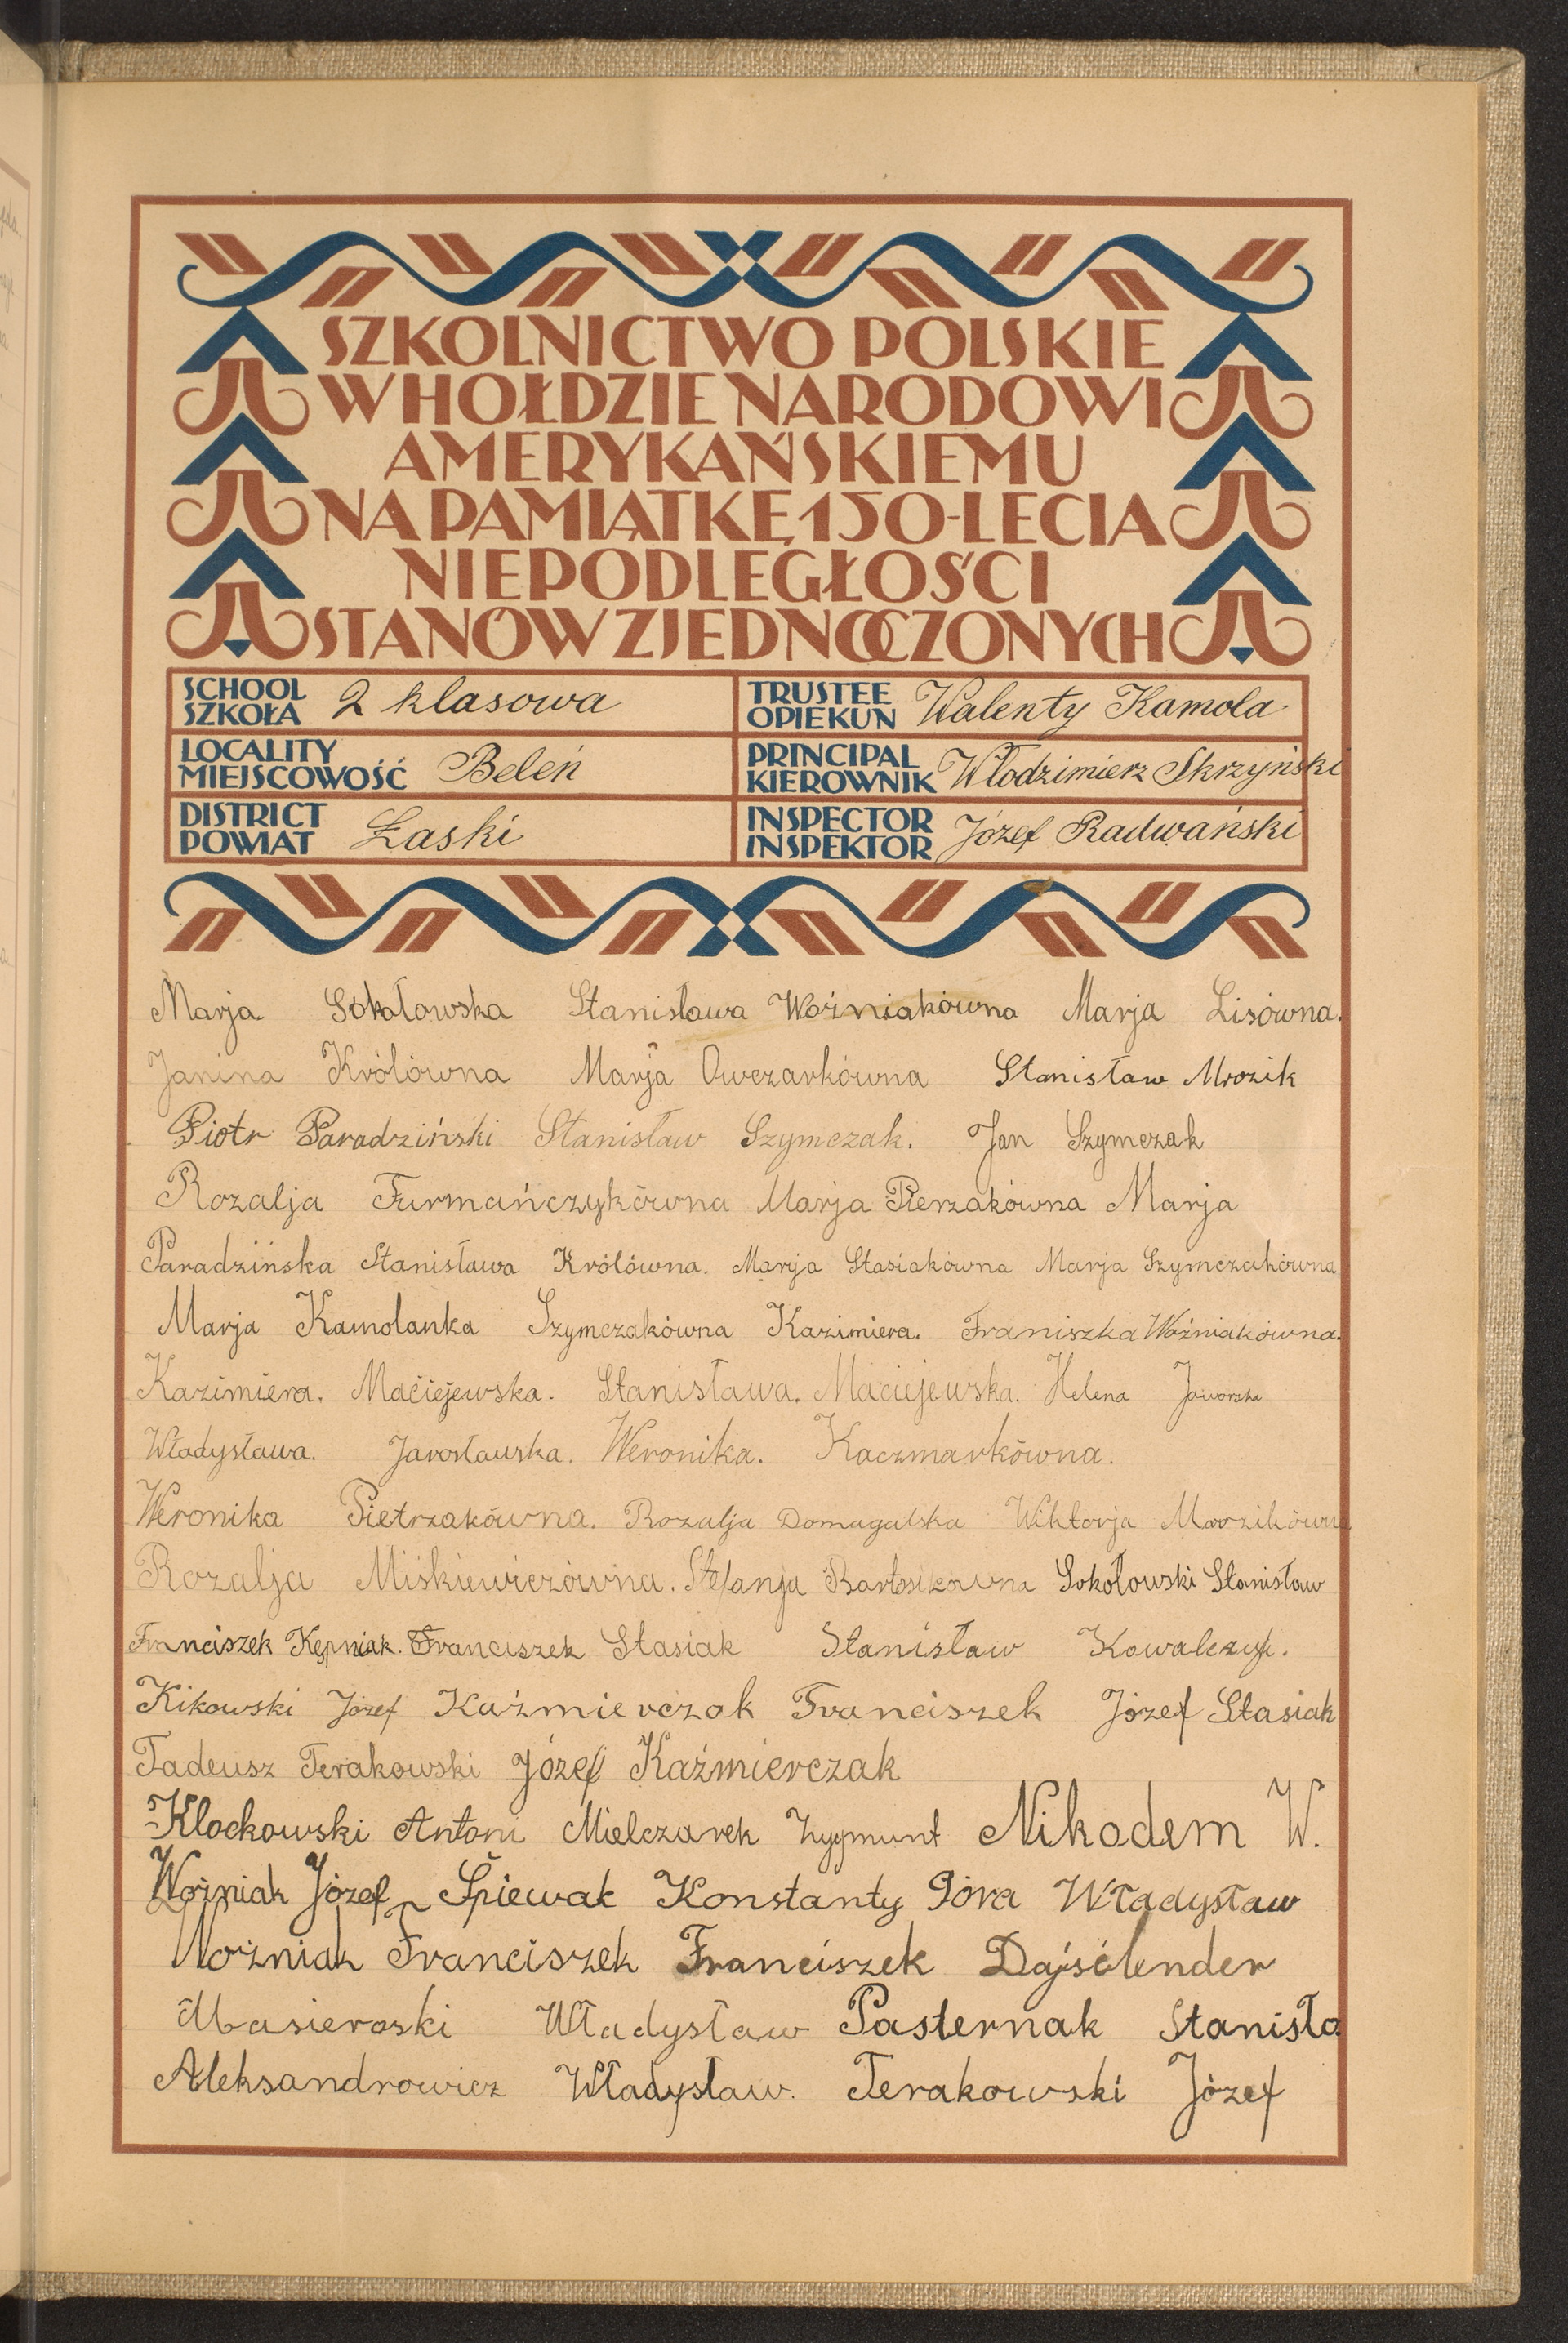 SZKOLNICTWO POLSKIE
W HOŁDZIE NARODOWI
AMERYKAŃSKIEMU
NA PAMIĄTKĘ 150-LECIA
NIEPODLEGŁOŚCI
STANÓW ZJEDNOCZONYCH
SCHOOL
SZKOŁA 2 klasowa
TRUSTEE
OPIEKUN Walenty Kamola
LOCALITY
MIEJSCOWOŚĆ Beleń
PRINCIPAL
KIEROWNIK Włodzimierz Skrzyński
DISTRICT
POWIAT Łaski
INSPECTOR
INSPEKTOR Józef Radwański
Marja Sokołowska Stanisława Woźniakówna Marja Lisówna.
Janina Królówna Marja Owczarkówna Stanisław Mrozik
Piotr Paradziński Stanisław Szymczak. Jan Szymczak
Rozalja Furmańczykówna Marja Pierzakówna Marja
Paradzińska Stanisława Królówna. Marja Stasiakówna Marja Szymczakówna
Marja Kamolanka Szymczakówna Kazimiera. Franiszka Woźniakówna.
Kazimiera. Maciejewska. Stanisława. Maciejewska. Helena Jaworska
Władysława. Jarosławska. Weronika. Kaczmarkówna.
Weronika Pietrzakówna. Rozalja Domagalska Wiktorja Mrozikówna
Rozalja Miśkiewiczówna. Stefanja Bartosikówna Sokołowski Stanisław
Franciszek Kępniak. Franciszek Stasiak Stanisław Kowalczyk.
Kikowski Józef Kaźmierczak Franciszek Józef Stasiak
Tadeusz Terakowski Józef Kaźmierczak
Klockowski Antoni Mielczarek Zygmunt Nikodem W.
Woźniak Józef Śpiewak Konstanty Góra Władysław
Woźniak Franciszek Franciszek Dajśćlender
Masieroski Władysław Pasternak Stanisła
Aleksandrowicz Władysław. Terakowski Józef